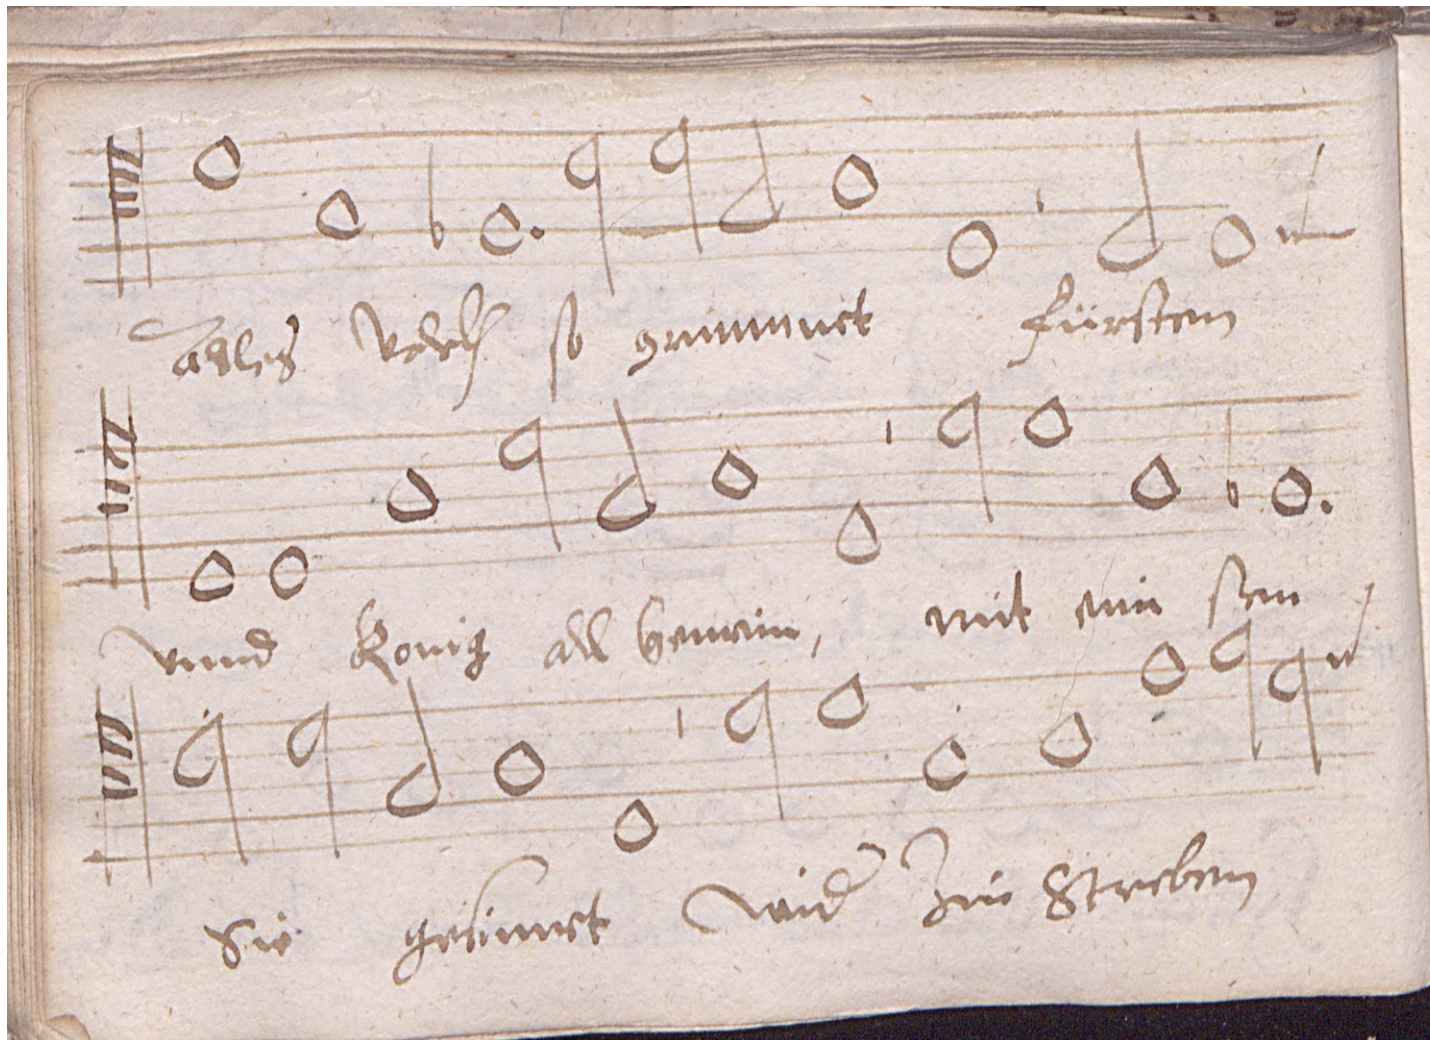 Alles Volck so grimmet fürsten
vnnd König all gemein, mit ein
Sie gesinnet wid Zu Streben